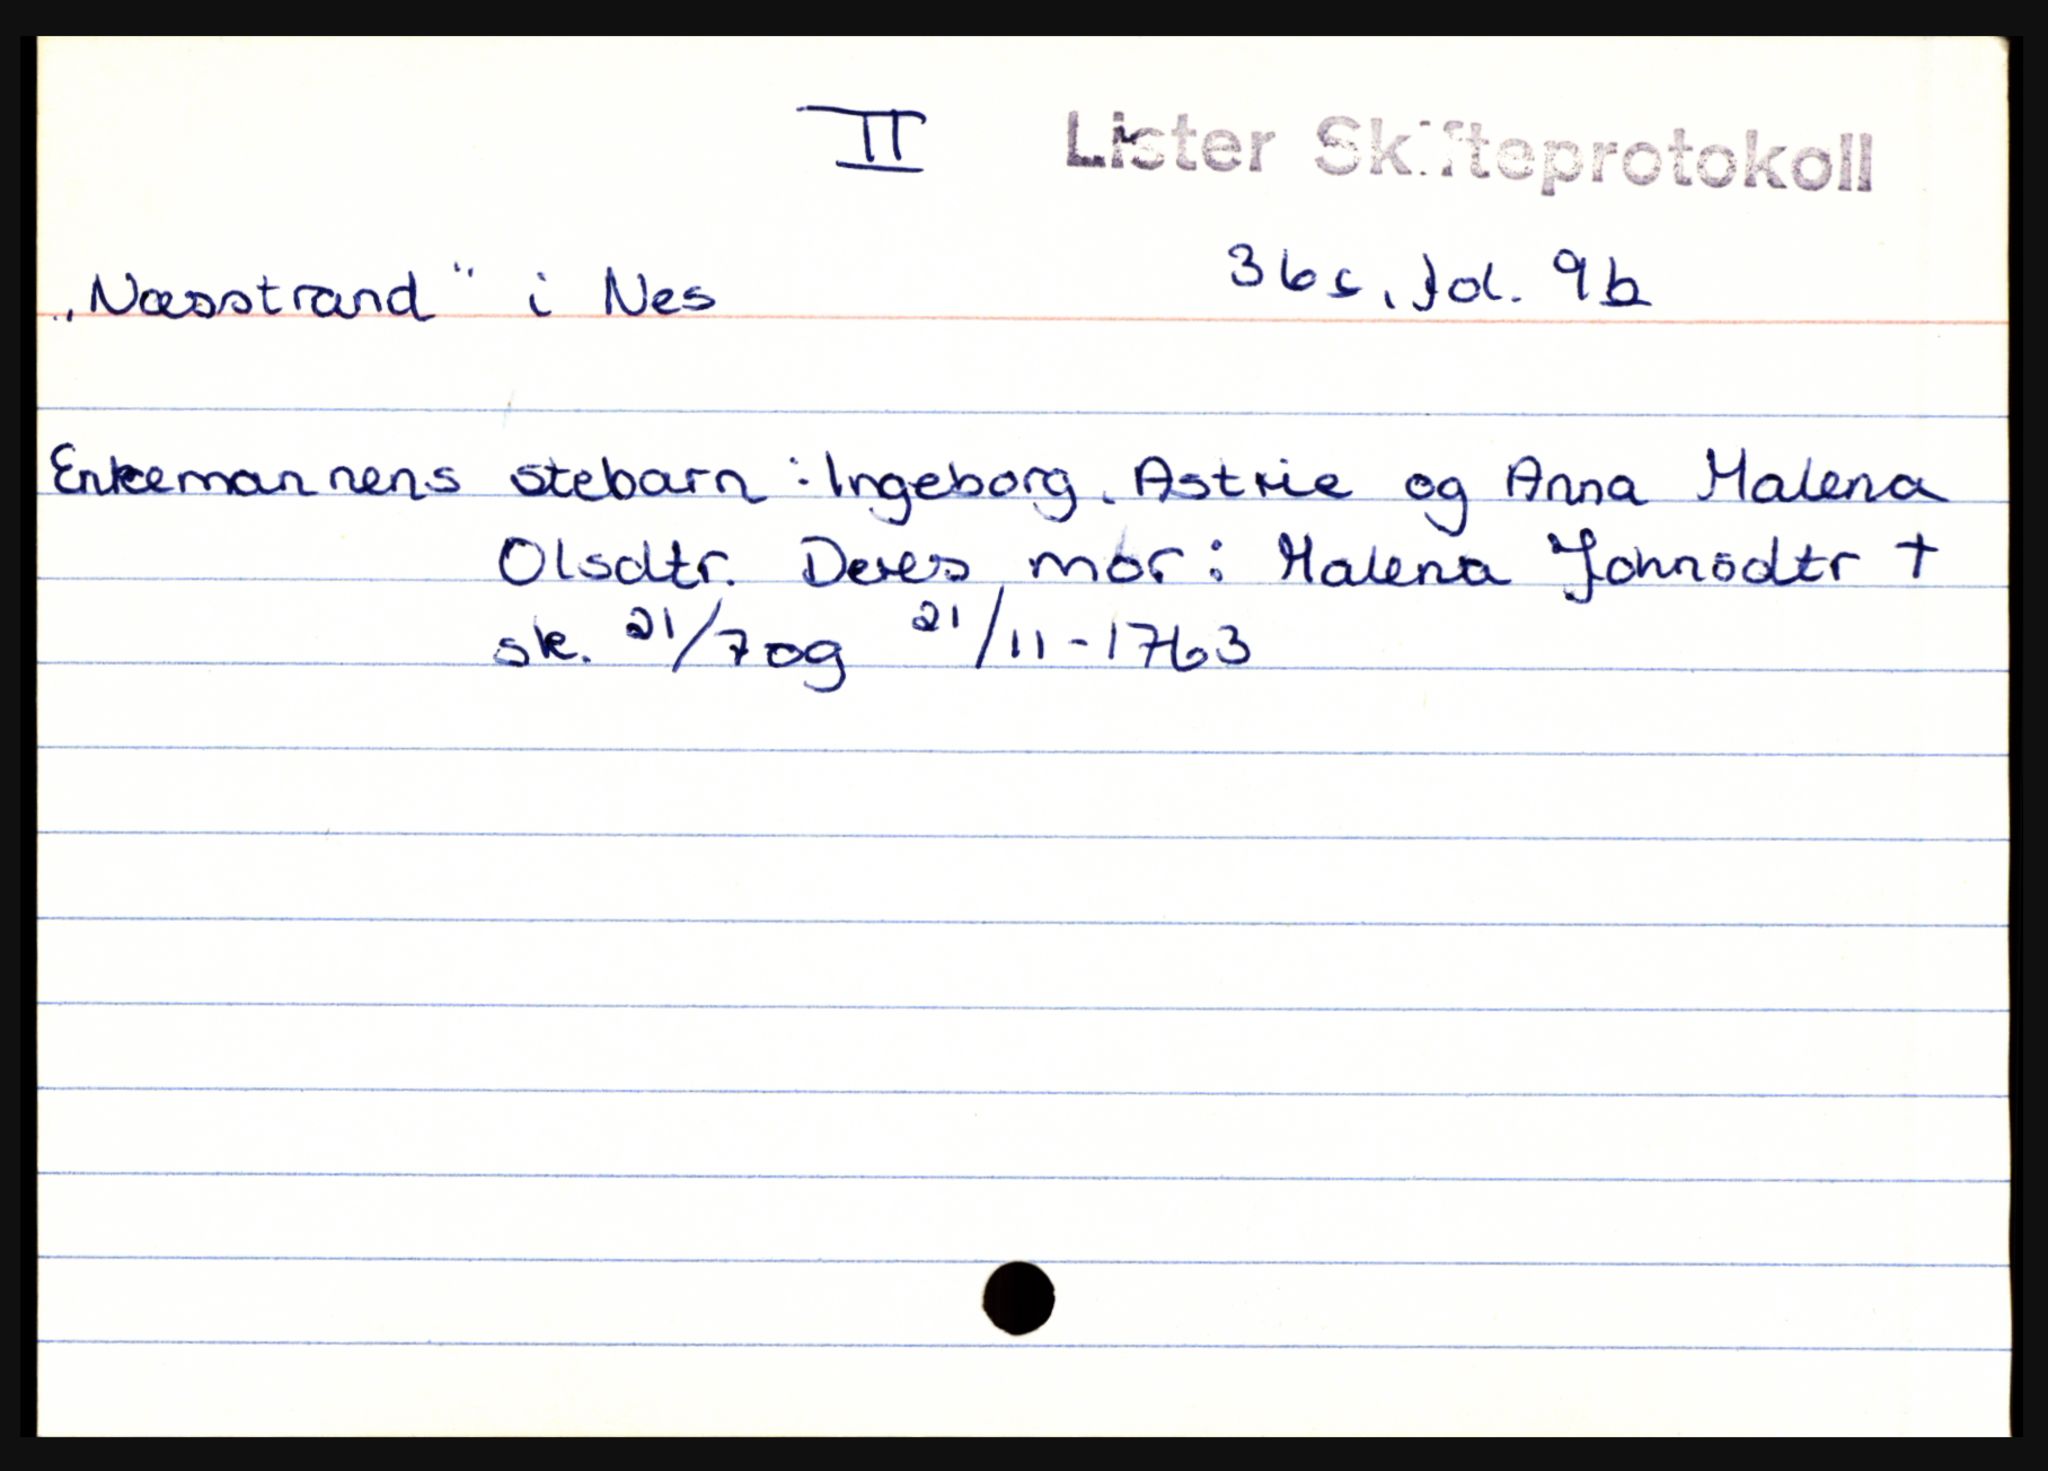 II Lister Skifteprotokoll
„Næsstrand“ i Nes 36c, fol. 9b
Enkemannens stebarn: Ingeborg, Astrie og Anna Malena
Olsdtr. Deres mor: Malena Johnsdtr †
sk. 21/7 og 21/11-1763